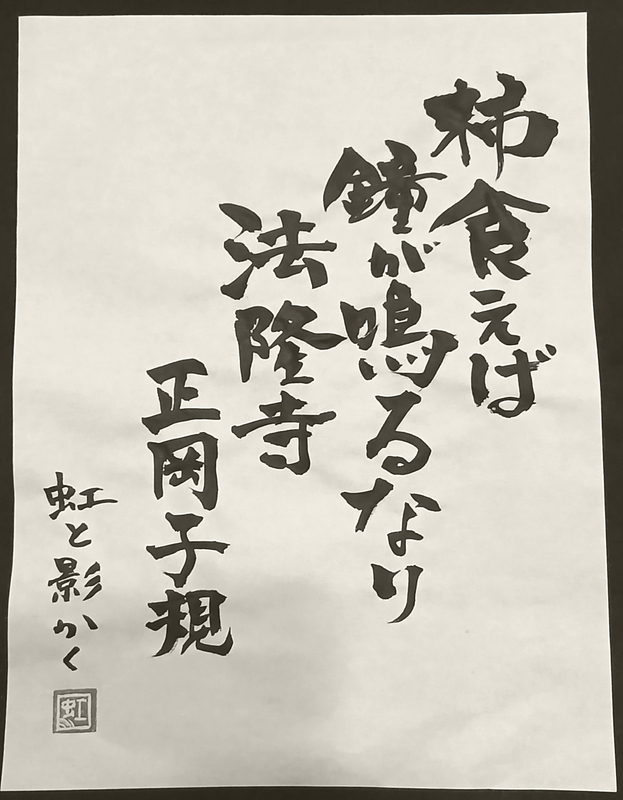 柿食えば
鐘が鳴るなり
法隆寺
正岡子規
虹と影かく
虹